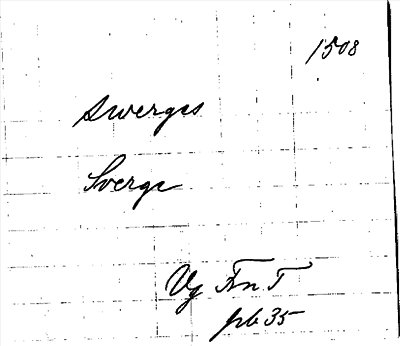 1508
Swerges
Sverge
Vg Fn. T
pb 35